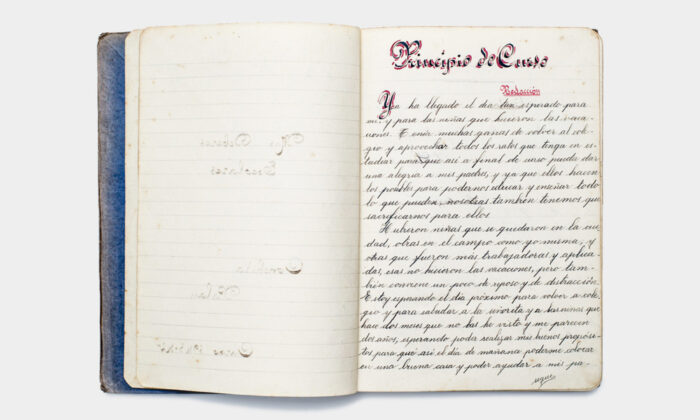 Principio de Curso
Redacción
Ya ha llegado el día tan esperado para
mi y para las niñas que hicieron las vaca-
ciones. Tenía muchas ganas de volver al cole-
gio y aprovechar todos los ratos que tenga en es-
tudiar para que así a final de curso pueda dar
una alegría a mis padres, y ya que ellos hacen
los posibles para podernos educar y enseñar todo
lo que pueden, nosotras también tenemos que
sacrificarnos para ellos
Hubieron niñas que se quedaron en la ciu-
dad, otras en el campo como yo misma, y
otras que fueron más trabajadoras y aplica-
das, esas no hicieron las vacaciones, pero tam-
bién conviene un poco de reposo y de distracción.
Estoy esperando el día próximo para volver a cole-
gio y para saludar a la señorita y a las niñas que
hace dos meses que no las he visto y me parecen
dos años, esperando poder realizar mis buenos propósi-
tos para que así el día de mañana poderme colocar
en una buena casa y poder ayudar a mis pa-
sigue